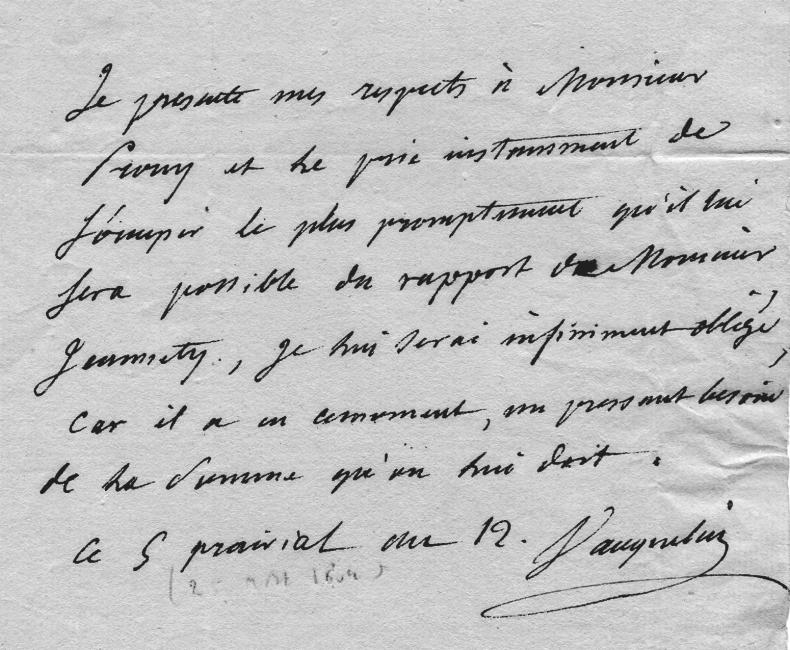 Je presente mes respects à Monsieur
Prony et le prie instamment de
s'occuper le plus promptement qu'il lui
sera possible du rapport de Monsieur
Jeannety., Je lui serai infiniment obligé,
car il a en cemoment, un pressant besoin
de la somme qu'on lui doit.
ce 5 prairial an 12. Vauquelin
(25 mai 1804)